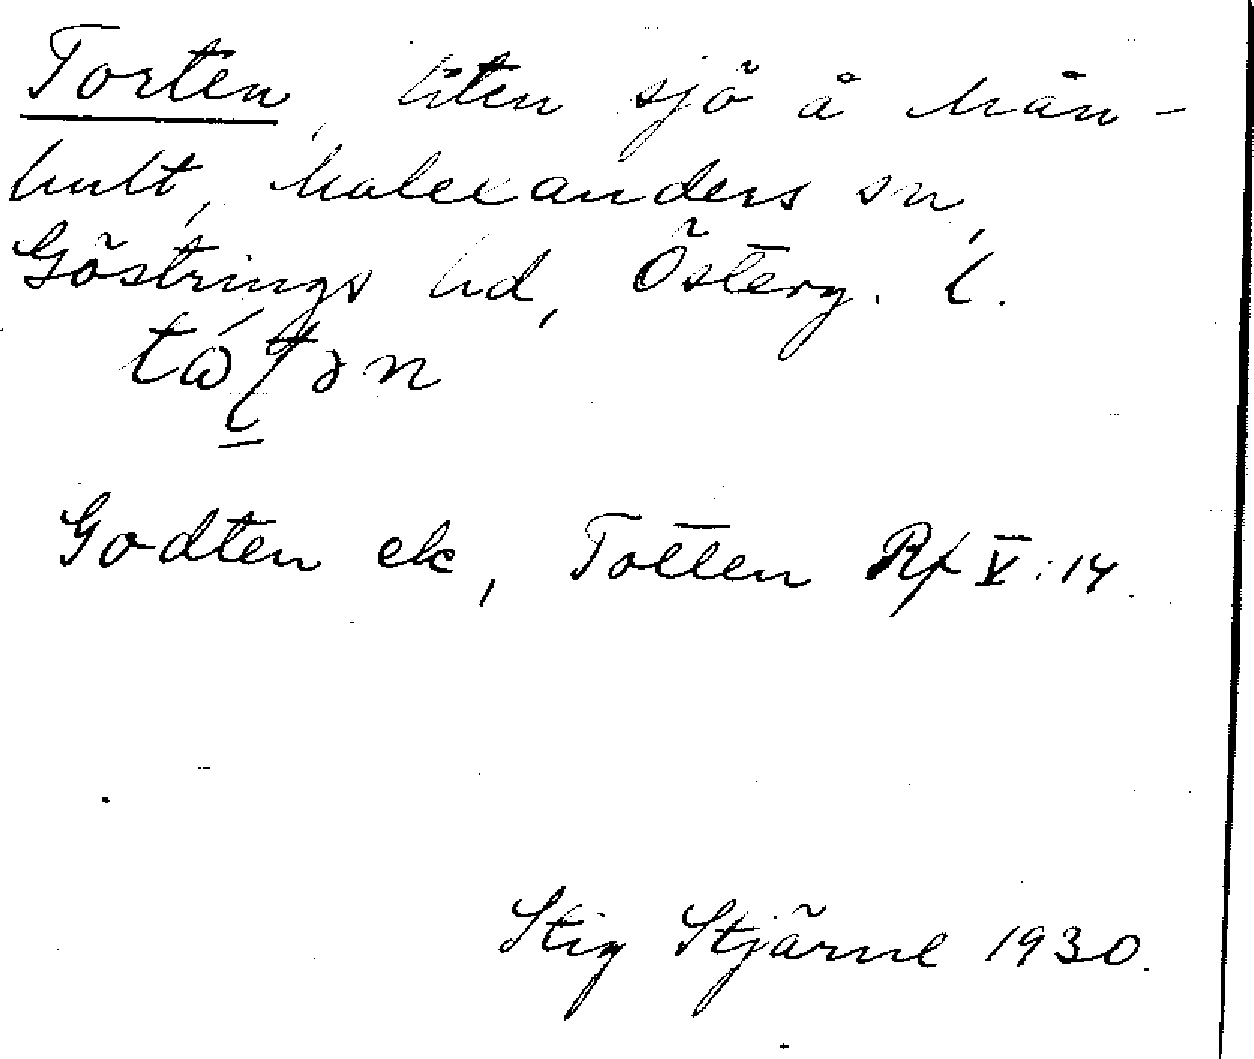 Torten, liten sjö å Mån-
hult, Malexanders sn,
Göstrings hd, Österg. l.
Godten ek, Totten Rf X:14.
Stig Stjärne 1930.